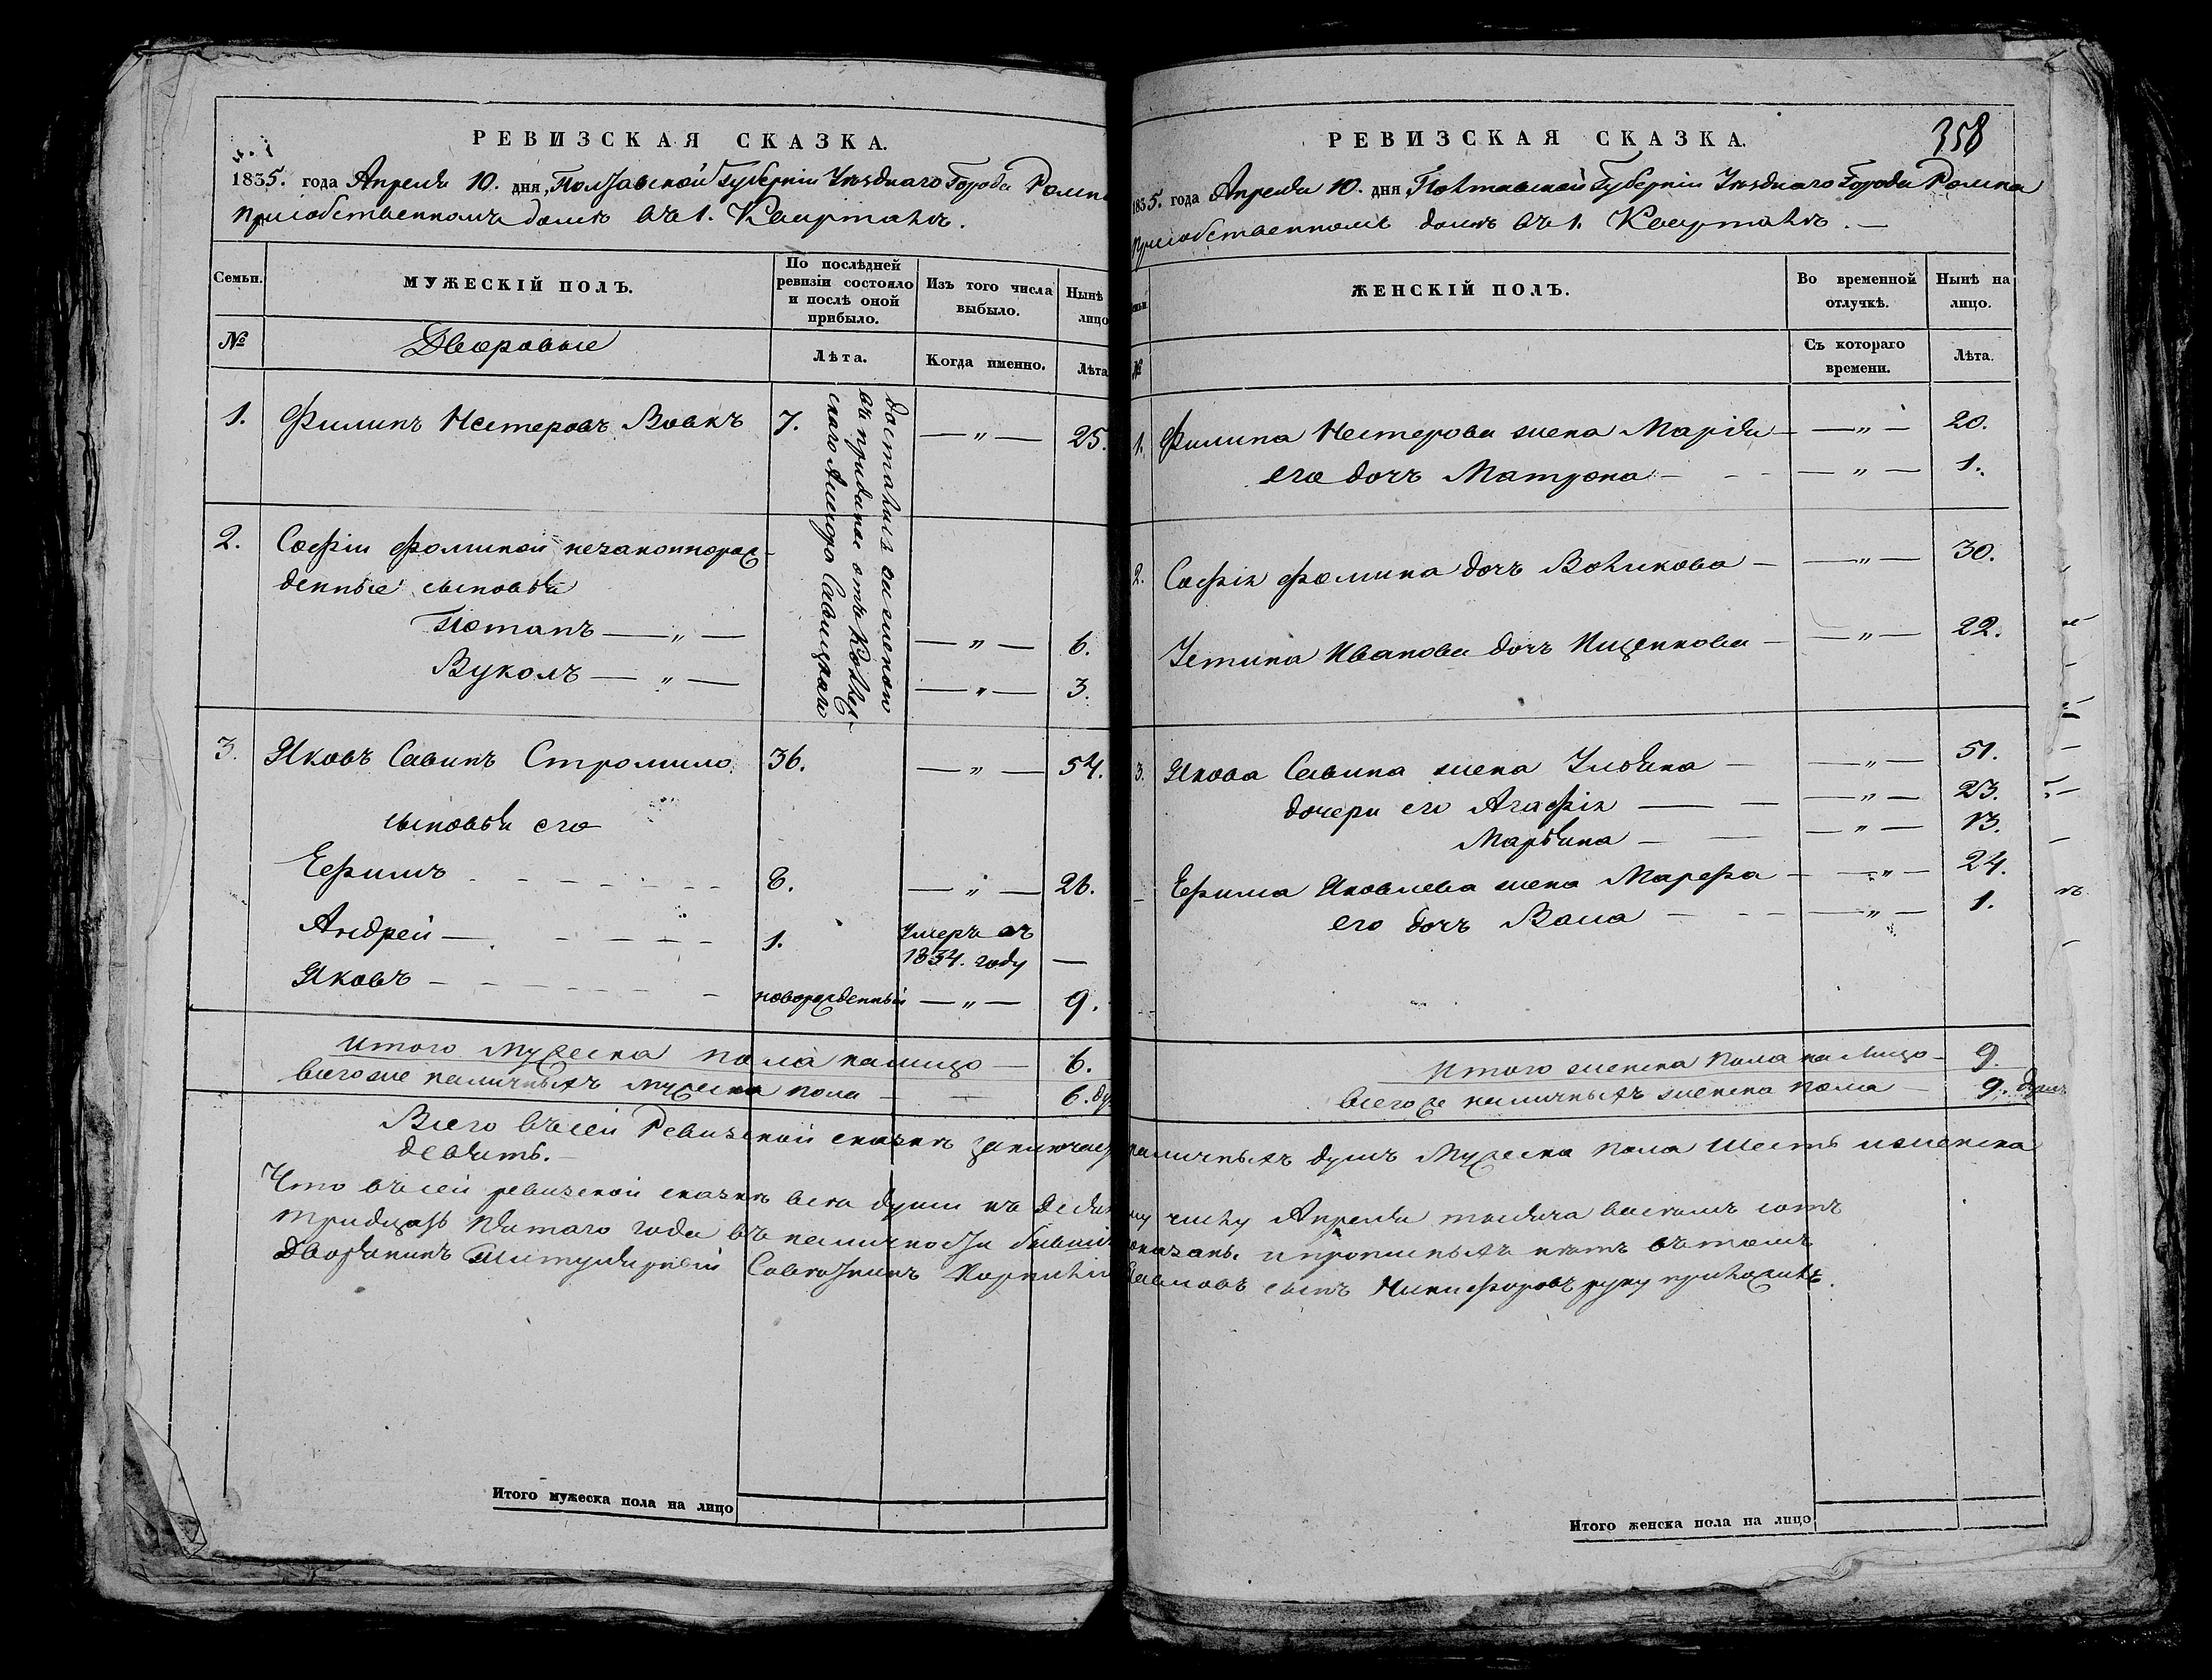 РЕВИЗСКАЯ СКАЗКА.
1835. года Апреля 10. дня, Полтавской Губернiи Уѣзднаго Города Ромна
при собственномъ домѣ въ 1. Кварталѣ.
Семьи.
МУЖЕСКІЙ ПОЛЪ.
По послѣдней ревизіи состояло и послѣ оной прибыло.
Изъ того числа выбыло.
Нынѣ лицо
№
Дворовые
Лѣта.
Когда именно.
Лѣта
1. Филипъ Нестеровъ Вовкъ 7. — „ — 25.
достались
въ приданое отъ
Савицкаго
2. Софіи Фоминой незаконнорож-
денные сыновья
Потапъ — „ — — „ — 6.
Вуколъ — „ — — „ — 3.
3. Яковъ Савинъ Стромило. 36. — „ — 54.
сыновья его
Ефимъ 8. — „ — 26.
Андрей 1. Умеръ въ
1834. году —
Яковъ новорожденный — „ — 9.
Итого мужеска пола налицо — 6.
Всего же наличныхъ мужеска пола — 6. ду
Итого мужеска пола на лицо
358
РЕВИЗСКАЯ СКАЗКА.
1835. года Апреля 10. дня Полтавской Губерніи Уѣзднаго Города Ромна
при собственномъ домѣ въ 1. Кварталѣ. —
ЖЕНСКІЙ ПОЛЪ.
Во временной отлучкѣ.
Нынѣ на лицо.
№
Съ котораго времени.
Лѣта.
1. Филипа Нестерова жена Марія — „ — 20.
его дочъ Матрона — „ — 1.
2. Софія Фомина дочъ Волкова — „ — 30.
Устина Иванова дочъ Ищенкова — „ — 22.
3. Якова Савина жена Ульяна — „ — 51.
дочери его Агафія — „ — 23.
Марьяна — „ — 13.
Ефима Яковлева жена Марфа — „ — 24.
его дочъ Васа — „ — 1.
Итого женска пола на лицо — 9.
Всего же наличныхъ женска пола — 9. душъ
Всего въ сей Ревизской сказкѣ заключается наличныхъ душъ мужеска пола шесть и женска
девять. —
Что въ сей ревизской сказкѣ всѣ души къ десятому числу Апреля тысяча восемь сотъ
тридцать пятаго года въ наличности бывшие показаны и прописныхъ нѣтъ въ томъ
Дворянинъ Титулярный Советникъ Корнилій Павловъ сынъ Никифоровъ руку приложилъ.
Итого женска пола на лицо